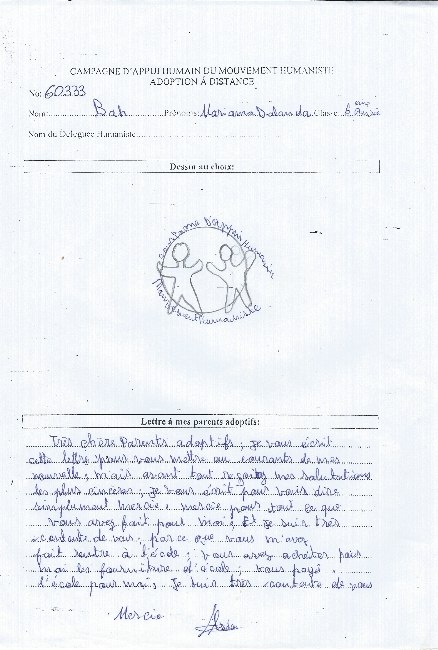 CAMPAGNE D'APPUI HUMAIN DU MOUVEMENT HUMANISTE
ADOPTION À DISTANCE
No: 60333
Nom: Bah Prénoms: Mariama Dalanda Classe 6 ème Année
Nom du Délégué Humaniste
Dessin au choix:
Campagne D'appui Humain
Mouvement humaniste
Lettre à mes parents adoptifs:
Très chère Parents adoptifs, Je vous écrit
cette lettre pour vous mettre au courants de mes
nouvelle, mais avant tout mes salutations
les plus sinceres, je vous écrit pour vous dire
simplement mercie mercie pour tout ce que
vous avez fait pour moi, Et je suis très
contente de vous, parce que vous m'avez
fait rentre à l'école, vous avez acheter pour
moi les fourniture d'école, vous payé
l'école pour moi, Je suis très contente de vous
Mercie